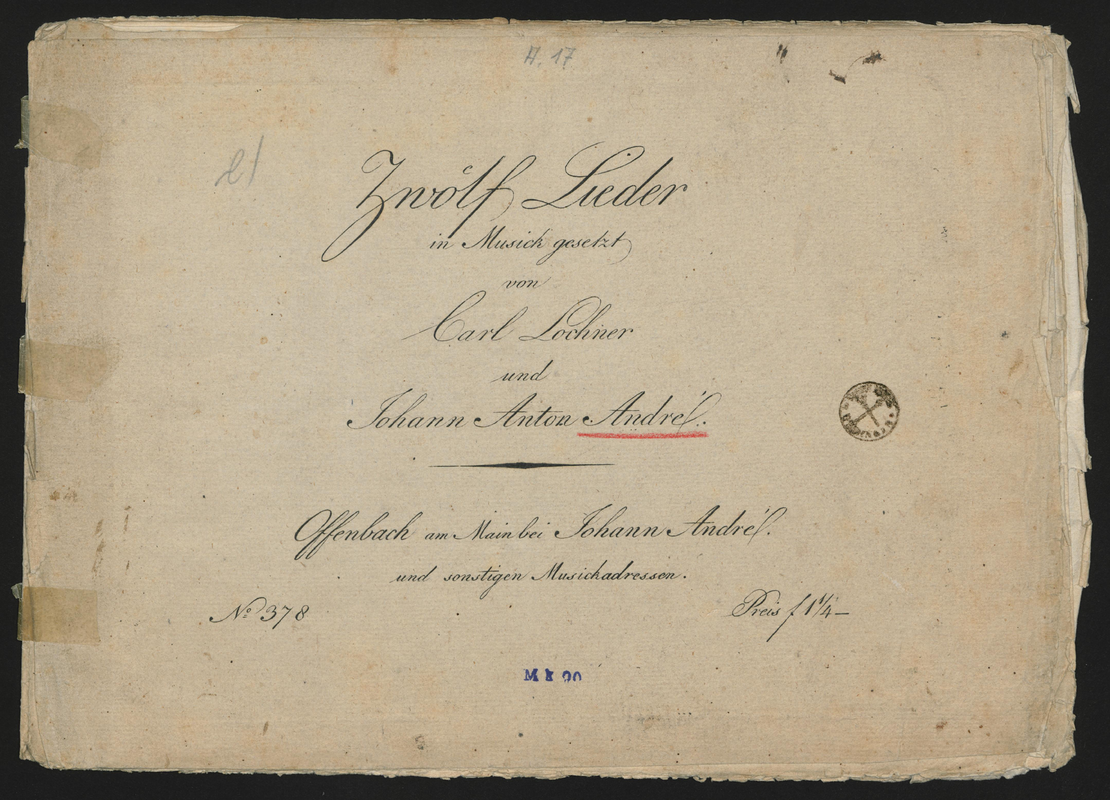 A. 17
Zwölf Lieder
in Musick gesetzt
von
Carl Lochner
und
Johann Anton André.
Offenbach am Main bei Johann André.
und sonstigen Musickadressen.
No 378
Preis f 1 1/4 —